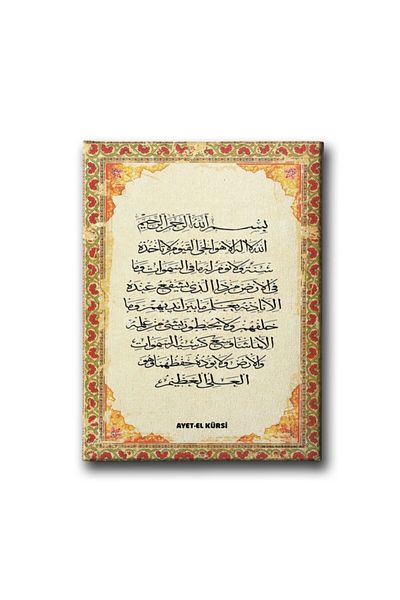 بسم الله الرحمن الرحيم
الله لا اله الا هو الحي القيوم لا تأخذه
سنة ولا نوم له ما في السموات وما
في الارض من ذا الذي يشفع عنده
الا باذنه يعلم ما بين ايديهم وما
خلفهم ولا يحيطون بشيء من علمه
الا بما شاء وسع كرسيه السموات
والارض ولا يؤده حفظهما وهو
العلي العظيم
AYET-EL KÜRSİ